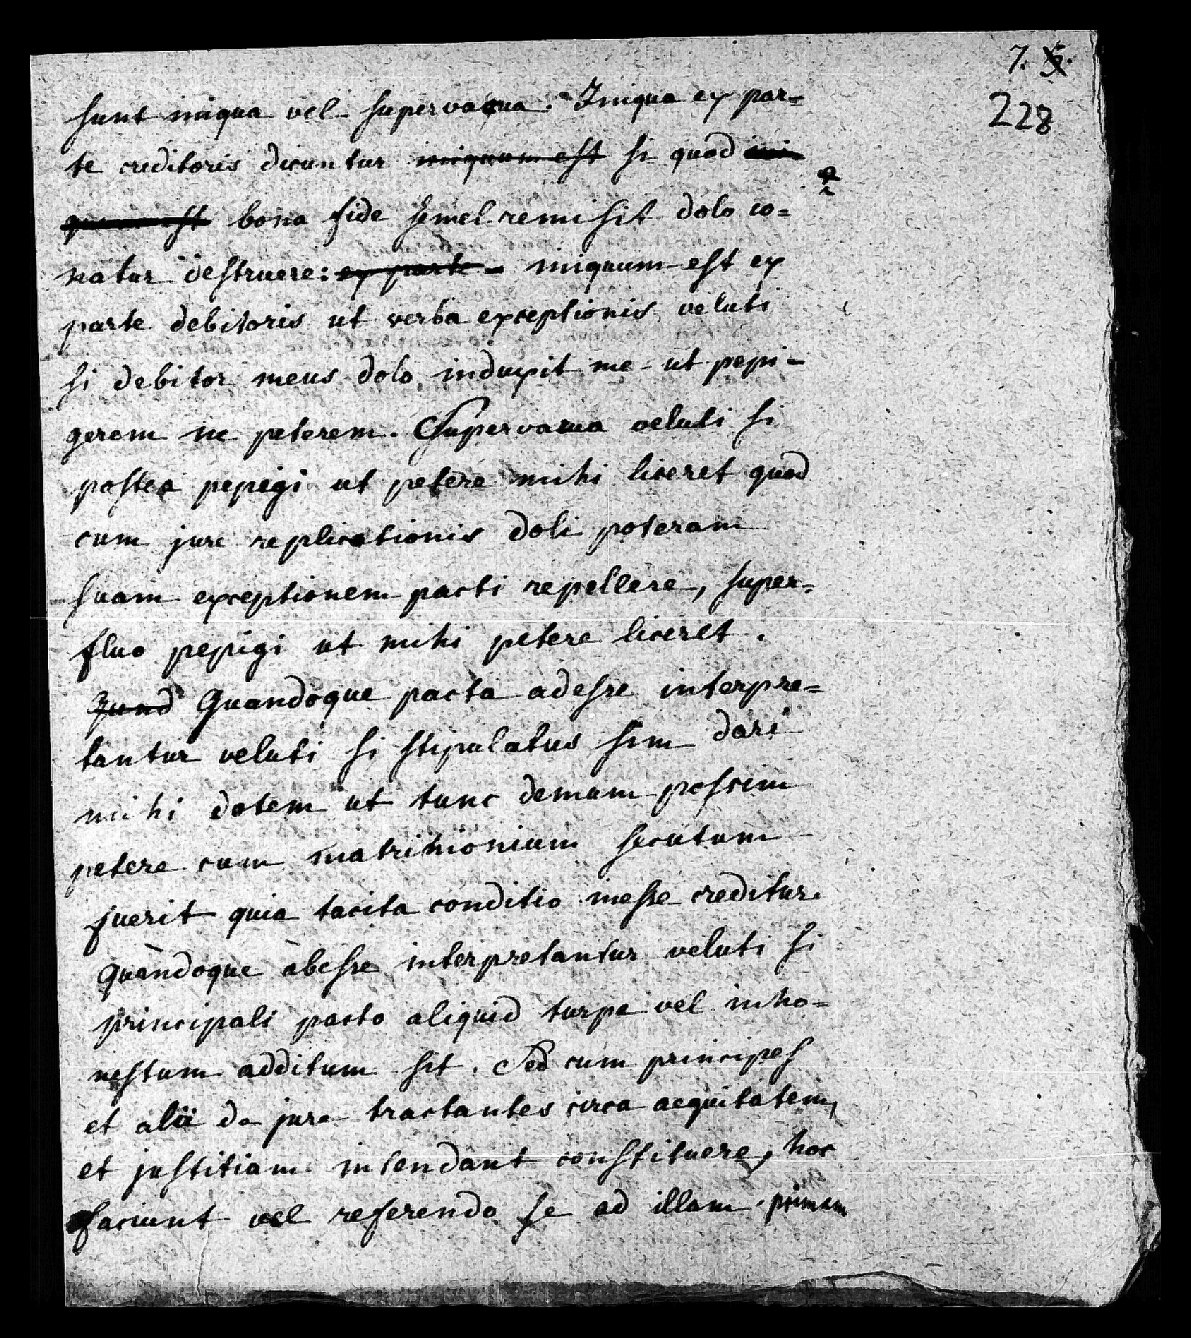 7. 5.
228
sunt iniqua vel supervacua. Iniqua ex par=
te creditoris dicuntur iniquum est si quod ini
quum est bona fide semel remisit dolo co=
natur destruere: ex parte - iniquum est ex
parte debitoris ut verba exceptionis veluti
si debitor meus dolo induxit me ut pepi-
gerem ne peterem. Supervacua veluti si
postea pepigi ut petere mihi liceret quod
cum jure replicationis doli poteram
suam exceptionem pacti repellere, super=
fluo pepigi ut mihi petere liceret.
Quand Quandoque pacta adesse interpre=
tantur veluti si stipulatus sim dari
mihi dotem ut tunc demum possim
petere cum matrimonium secutum
fuerit quia tacita conditio inesse creditur.
Quandoque abesse interpretantur veluti si
principali pacto aliquid turpe vel inho-
nestum additum sit. Sed cum principes
et alii de jure tractantes circa aequitatem,
et justitiam intendant constituere, hoc
faciunt vel referendo se ad illam primam